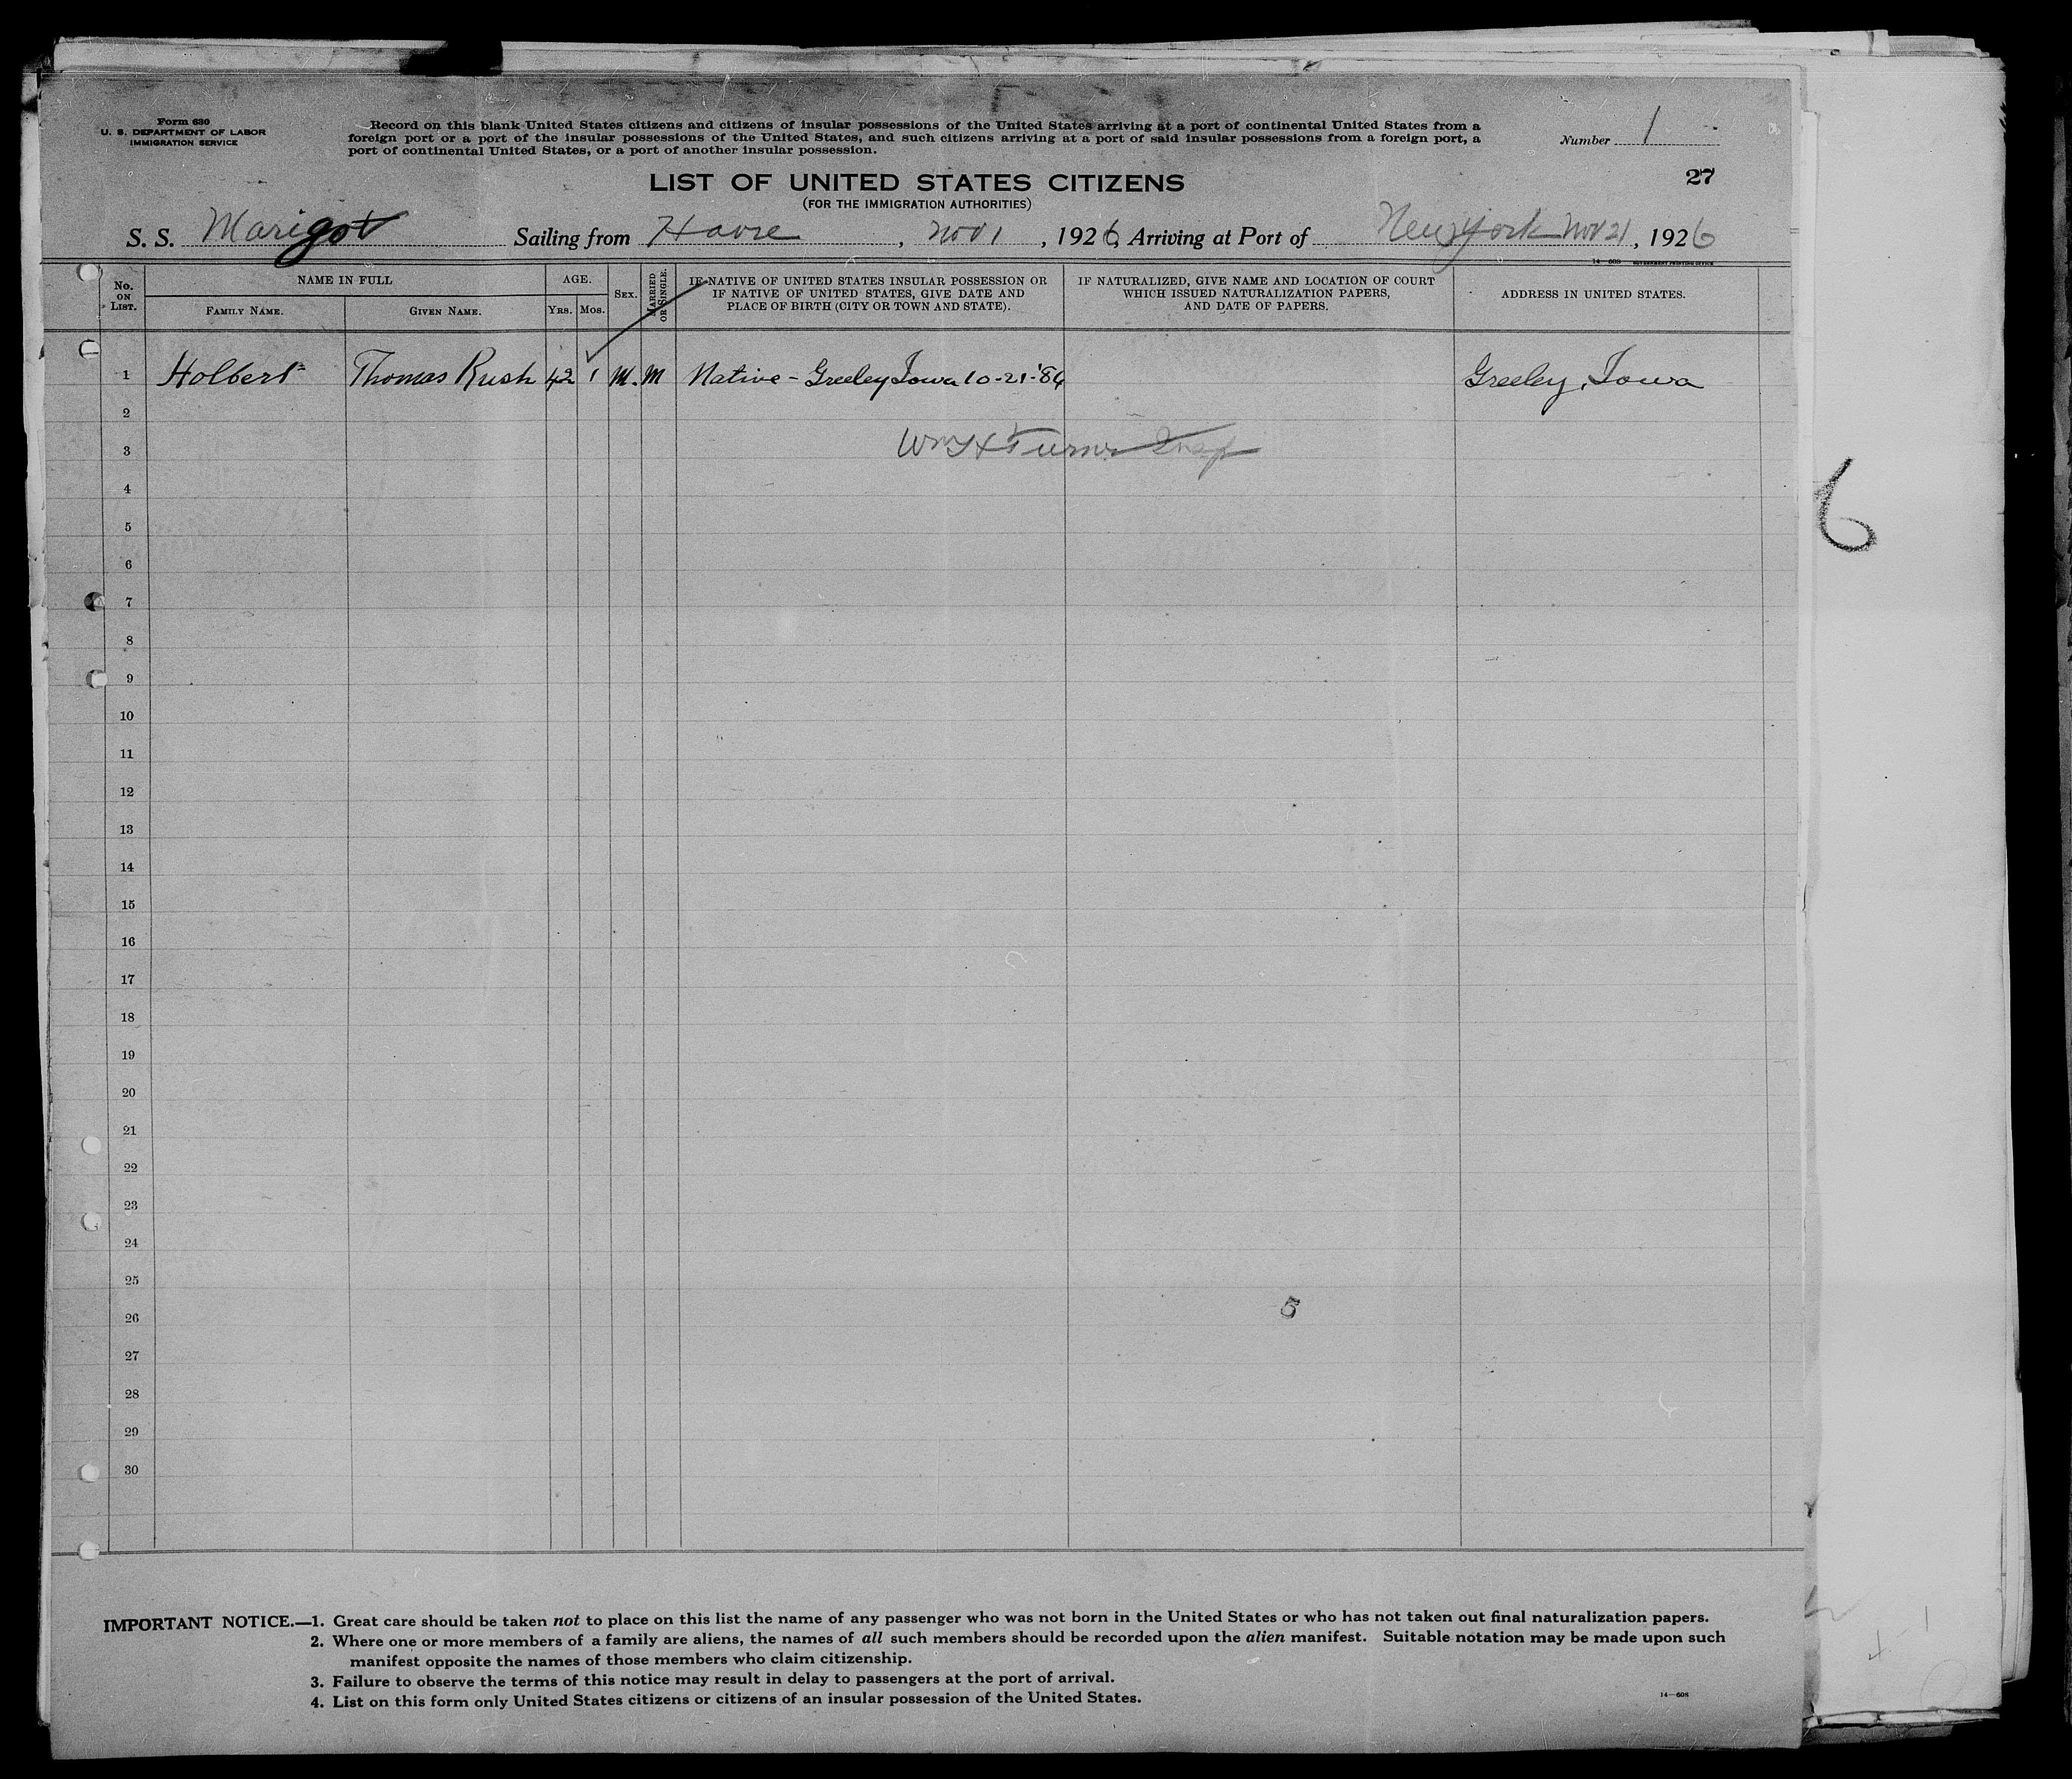 Form 630
U. S. DEPARTMENT OF LABOR
IMMIGRATION SERVICE
Record on this blank United States citizens and citizens of insular possessions of the United States arriving at a port of continental United States from a
foreign port or a port of the insular possessions of the United States, and such citizens arriving at a port of said insular possessions from a foreign port, a
port of continental United States, or a port of another insular possession.
Number 1
27
LIST OF UNITED STATES CITIZENS
(FOR THE IMMIGRATION AUTHORITIES)
S. S. Marigot Sailing from Havre, Nov 1, 1926, Arriving at Port of New York Nov 21, 1926
14—608 GOVERNMENT PRINTING OFFICE
No. ON LIST.
NAME IN FULL
FAMILY NAME.
GIVEN NAME.
AGE.
YRS.
MOS.
SEX.
MARRIED OR SINGLE.
IF NATIVE OF UNITED STATES INSULAR POSSESSION OR
IF NATIVE OF UNITED STATES, GIVE DATE AND
PLACE OF BIRTH (CITY OR TOWN AND STATE).
IF NATURALIZED, GIVE NAME AND LOCATION OF COURT
WHICH ISSUED NATURALIZATION PAPERS,
AND DATE OF PAPERS.
ADDRESS IN UNITED STATES.
1 Holbert Thomas Rush 42 1 M. M Native - Greeley Iowa 10-21-'84 Greeley, Iowa
2
3 Wm H Turner Insp
4
5
6
6
7
8
9
10
11
12
13
14
15
16
17
18
19
20
21
22
23
24
25
5
26
27
28
29
30
IMPORTANT NOTICE.—1. Great care should be taken not to place on this list the name of any passenger who was not born in the United States or who has not taken out final naturalization papers.
2. Where one or more members of a family are aliens, the names of all such members should be recorded upon the alien manifest. Suitable notation may be made upon such
manifest opposite the names of those members who claim citizenship.
3. Failure to observe the terms of this notice may result in delay to passengers at the port of arrival.
4. List on this form only United States citizens or citizens of an insular possession of the United States.
14—608